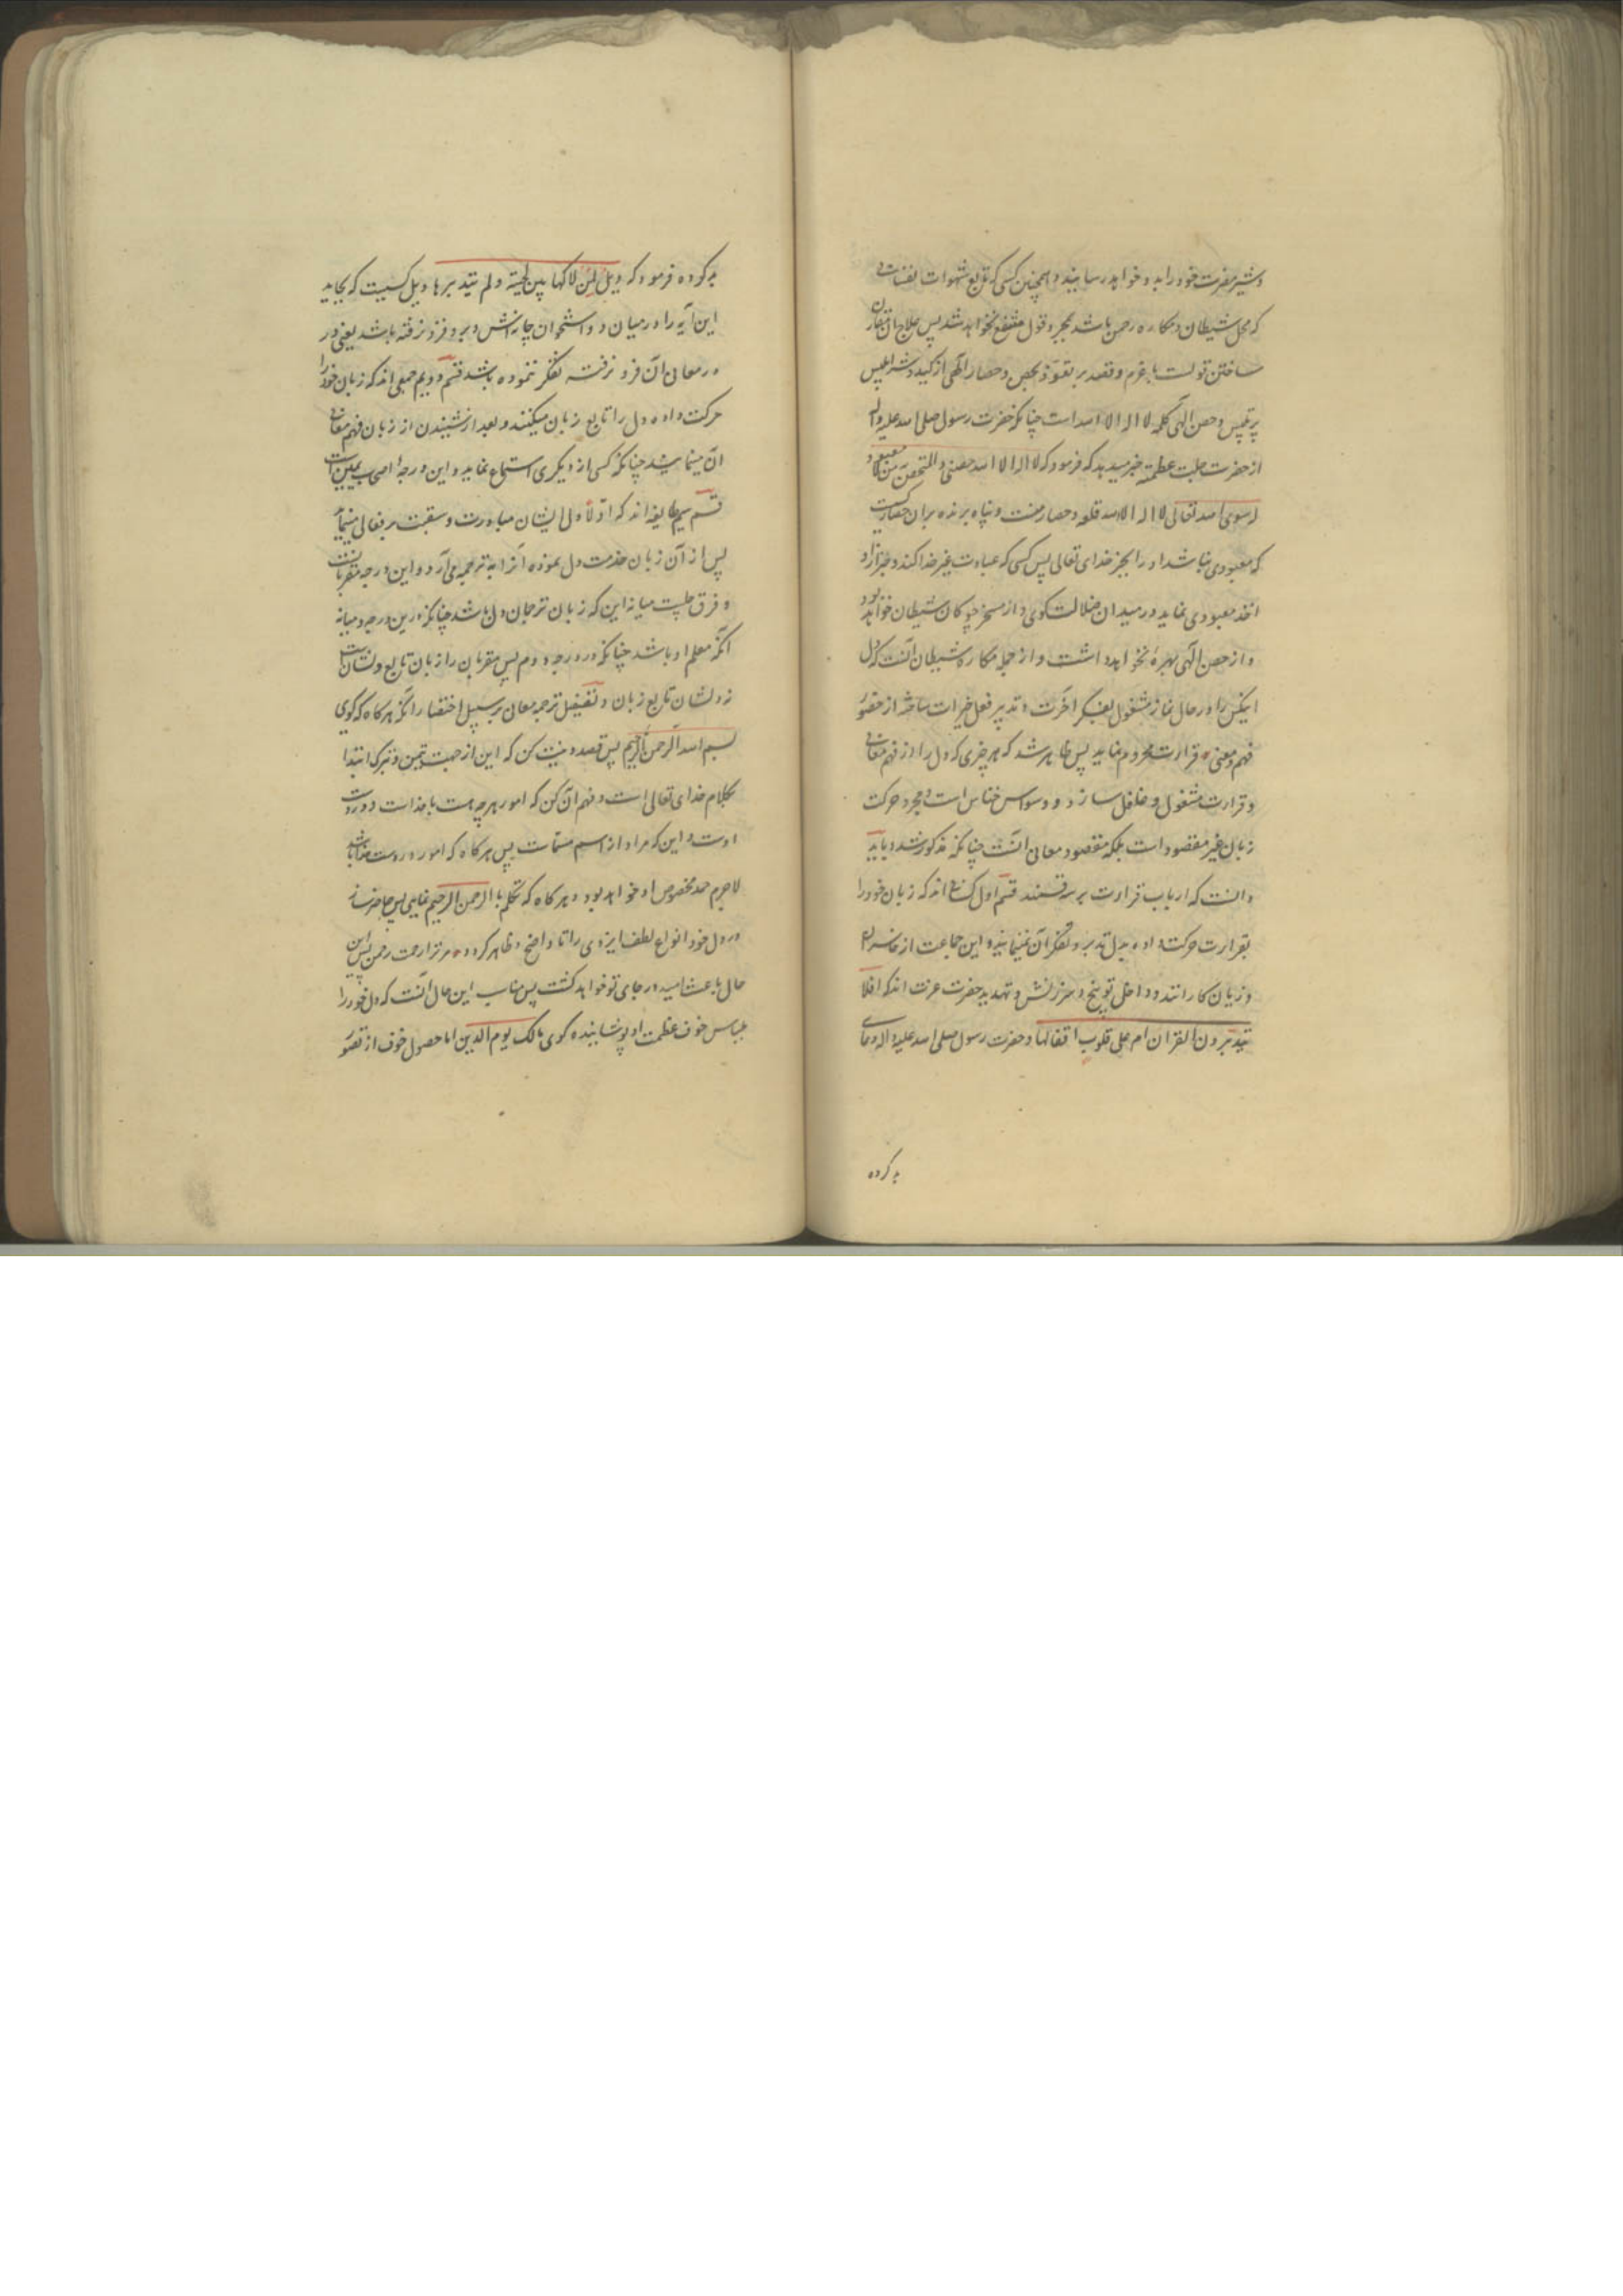 و شیر مضرت خود را بدو خواهد رسانید و همچنین کسی که تابع شهوات نفسانی
که محل شیطان و مکاره رحمن باشد بمجرد قول منتفع نخواهد شد پس علاج آن مقارن
ساختن قولست با عزم و قصد بر تعوذ بحصن و حصار الهی از کید و شر ابلیس
پر تلبیس و حصن الهی کلمه لا اله الا الله است چنانکه حضرت رسول صلی الله علیه و اله
از حضرت جلت عظمته خبر میدهد که فرمود که لا اله الا الله حصنی و المتحصن من لا معبود
له سوی الله تعالی لا اله الا الله قلعه و حصار منست و پناه برنده بران حصار کسیست
که معبودی نباشد او را بجز خدای تعالی پس کسی که عبادت غیر خدا کند و غیر او را
اخذ معبودی نماید در میدان ضلالت گوی و از مسخر چوکان شیطان خواهد بود
و از حصن الهی بهره نخواهد داشت و از جمله مکاره شیطان آنست که دل
اینکس را در حال نماز مشغول بفکر آخرت و تدبیر فعل خیرات ساخته از حضور
فهم و معنی قرارت محروم نماید پس ظاهر شد که هر چیزی که دل را از فهم معانی
و قرارت مشغول و غافل سازد و وسواس خناس است و مجرد حرکت
زبان غیر مقصود است بلکه مقصود معانی آنست چنانکه مذکور شد و باید
دانست که ارباب قراوت بر سه قسمند قسم اول کسانی اند که زبان خود را
بقرارت حرکت داده بدل تدبر و تفکر آن نمینمایند و این جماعت از خاسران
و زیان کارانند و داخل توبیخ و سرزنش و تهدید حضرت عزت اند که افلا
یتدبرون القران ام علی قلوب اقفالها و حضرت رسول صلی الله علیه و اله دعای
به کرده
به کرده فرمود که ویل لمن لاکها بین لحیته و لم یتدبرها ویل کسیست که بخاید
این آیه را در میان دو استخوان چانه اش و برو فرو نرفته باشد یعنی در
در معانی آن فرو نرفته تفکر ننموده باشد قسم دویم جمعی اند که زبان خود را
حرکت داده دل را تابع زبان میکنند و بعد از شنیدن از زبان فهم معانی
آن مینمایند چنانکه کسی از دیگری استماع نماید و این درجهٔ اصحاب یمین است
قسم سیم طایفه اند که اولا دل ایشان مبادرت و سبقت بر معانی مینماید
پس از آن زبان خدمت دل نموده آنرا بترجمه می آرد و این درجه مقربانست
و فرق جلیست میانه این که زبان ترجمان دل باشد چنانکه درین درجه و میانه
آنکه معلم او باشد چنانکه در درجه دوم پس مقربان را زبان تابع دلشانست
نه دلشان تابع زبان و تفصیل ترجمه معانی بر سبیل اختصار آنکه هرکاه که کوی
بسم الله الرحمن الرحیم پس قصد و نیت کن که این از جهت تیمن و تبرک ابتدا
بکلام خدای تعالی است و فهم آن کن که امور هرچه هست با خداست و در دست
اوست و این که مراد از اسم مسمات پس هرکاه که امور در دست خدا باشد
لاجرم حمد مخصوص او خواهد بود و هرکاه که تکلم با الرحمن الرحیم نمایی پس حاضر ساز
در دل خود انواع لطف ایزدی را تا واضح و ظاهر کردد مر ترا رحمت رحمن پس این
حال باعث امید و رجای تو خواهد کشت پس مناسب این حال آنست که دل خود را
بلباس خوف عظمت او پوشانیده کوی مالک یوم الدین اما حصول خوف از تصور